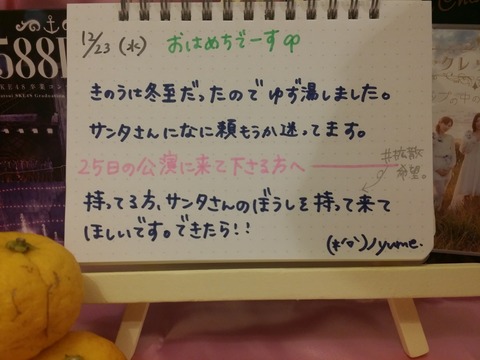 12/23(水) おはめちでーす
きのうは冬至だったのでゆず湯しました。
サンタさんになに頼もうか迷ってます。
25日の公演に来て下さる方へ
#拡散希望。
持ってる方、サンタさんのぼうしを持って来て
ほしいです。できたら!!
yume.
588